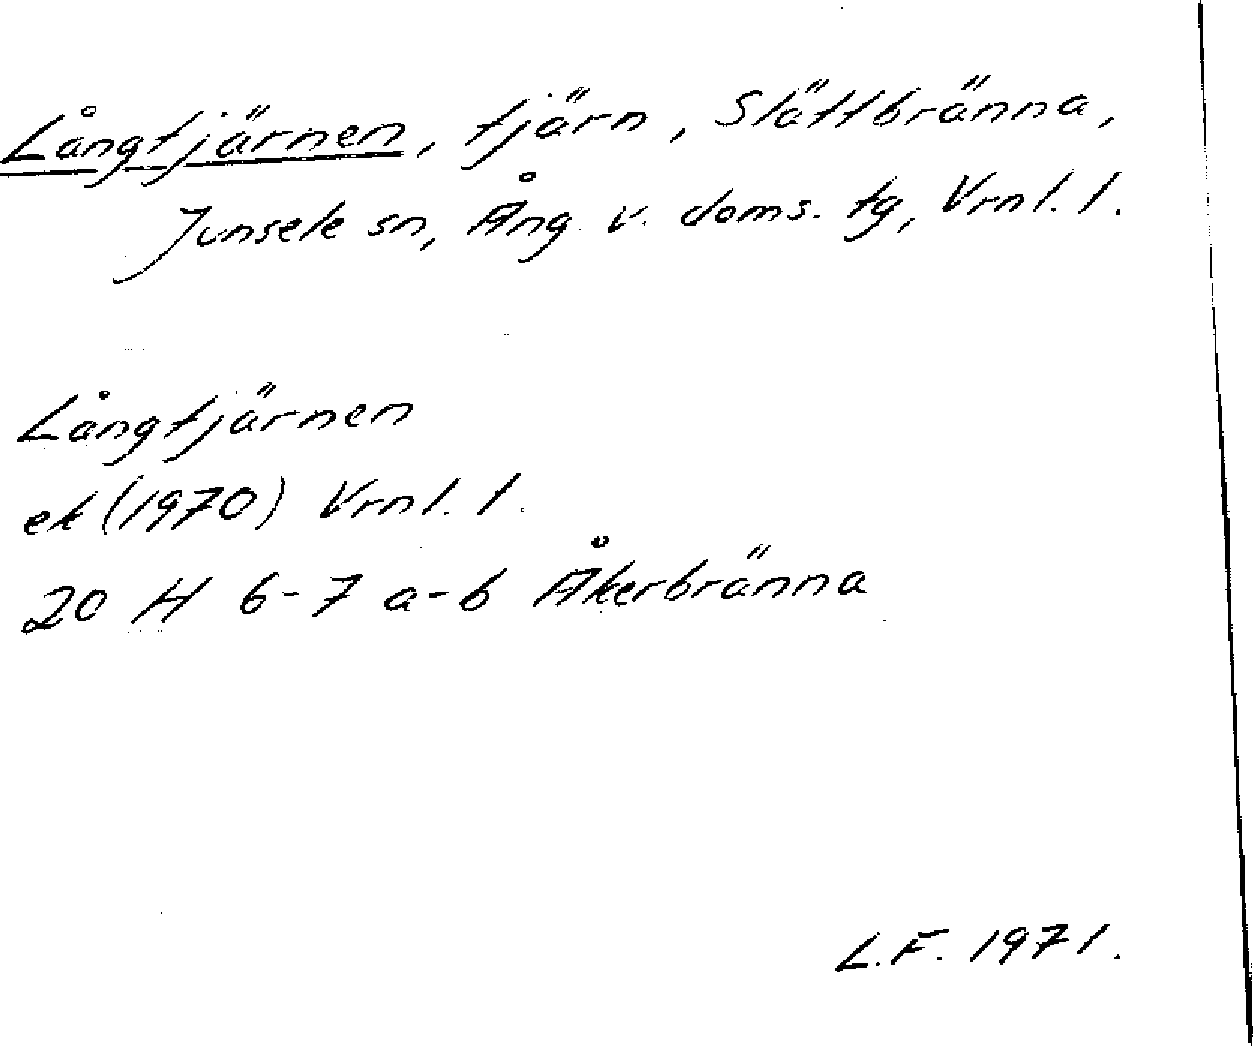 Långtjärnen, tjärn, Slättbränna,
Junsele sn, Ång. v. doms. tg, Vrnl. l.
Långtjärnen
ek (1970) Vrnl. l.
20 H 6-7 a-b Åkerbränna
L.F. 1971.